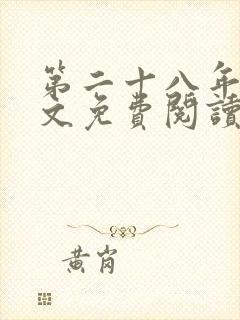 第二十八年
文免費閱讀
黃崗